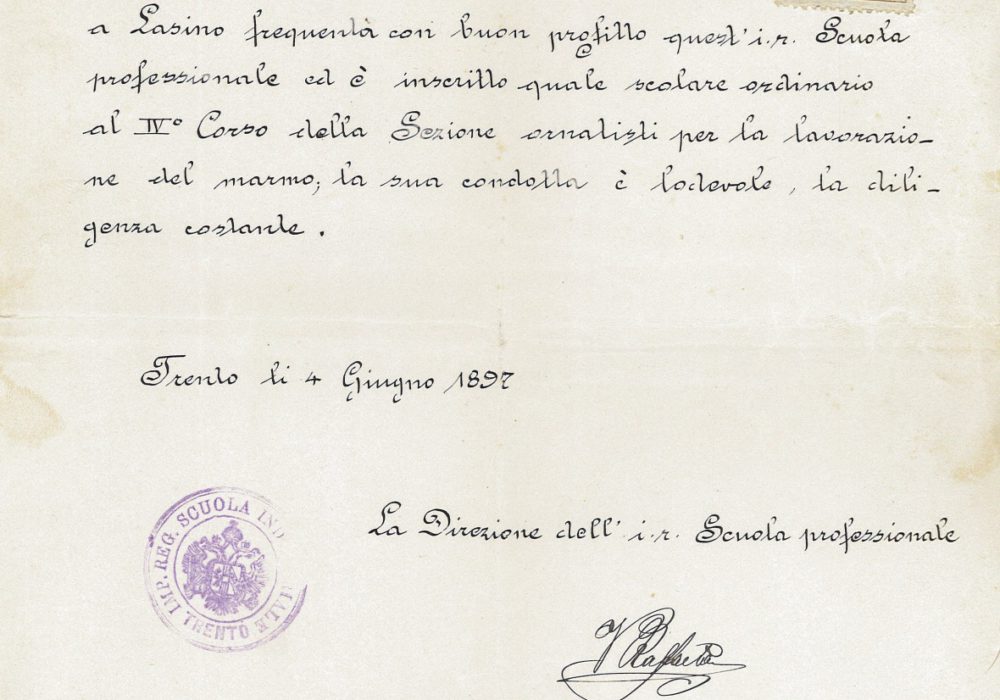 a Lasino frequenta con buon profitto quest' i. r. Scuola
professionale ed è inscritto quale scolare ordinario
al IV° Corso della Sezione ornatisti per la lavorazio-
ne del marmo; la sua condotta è lodevole, la dili-
genza costante.
Trento li 4 Giugno 1897
La Direzione dell' i. r. Scuola professionale
IMP. REG. SCUOLA IND
ALE TRENTO